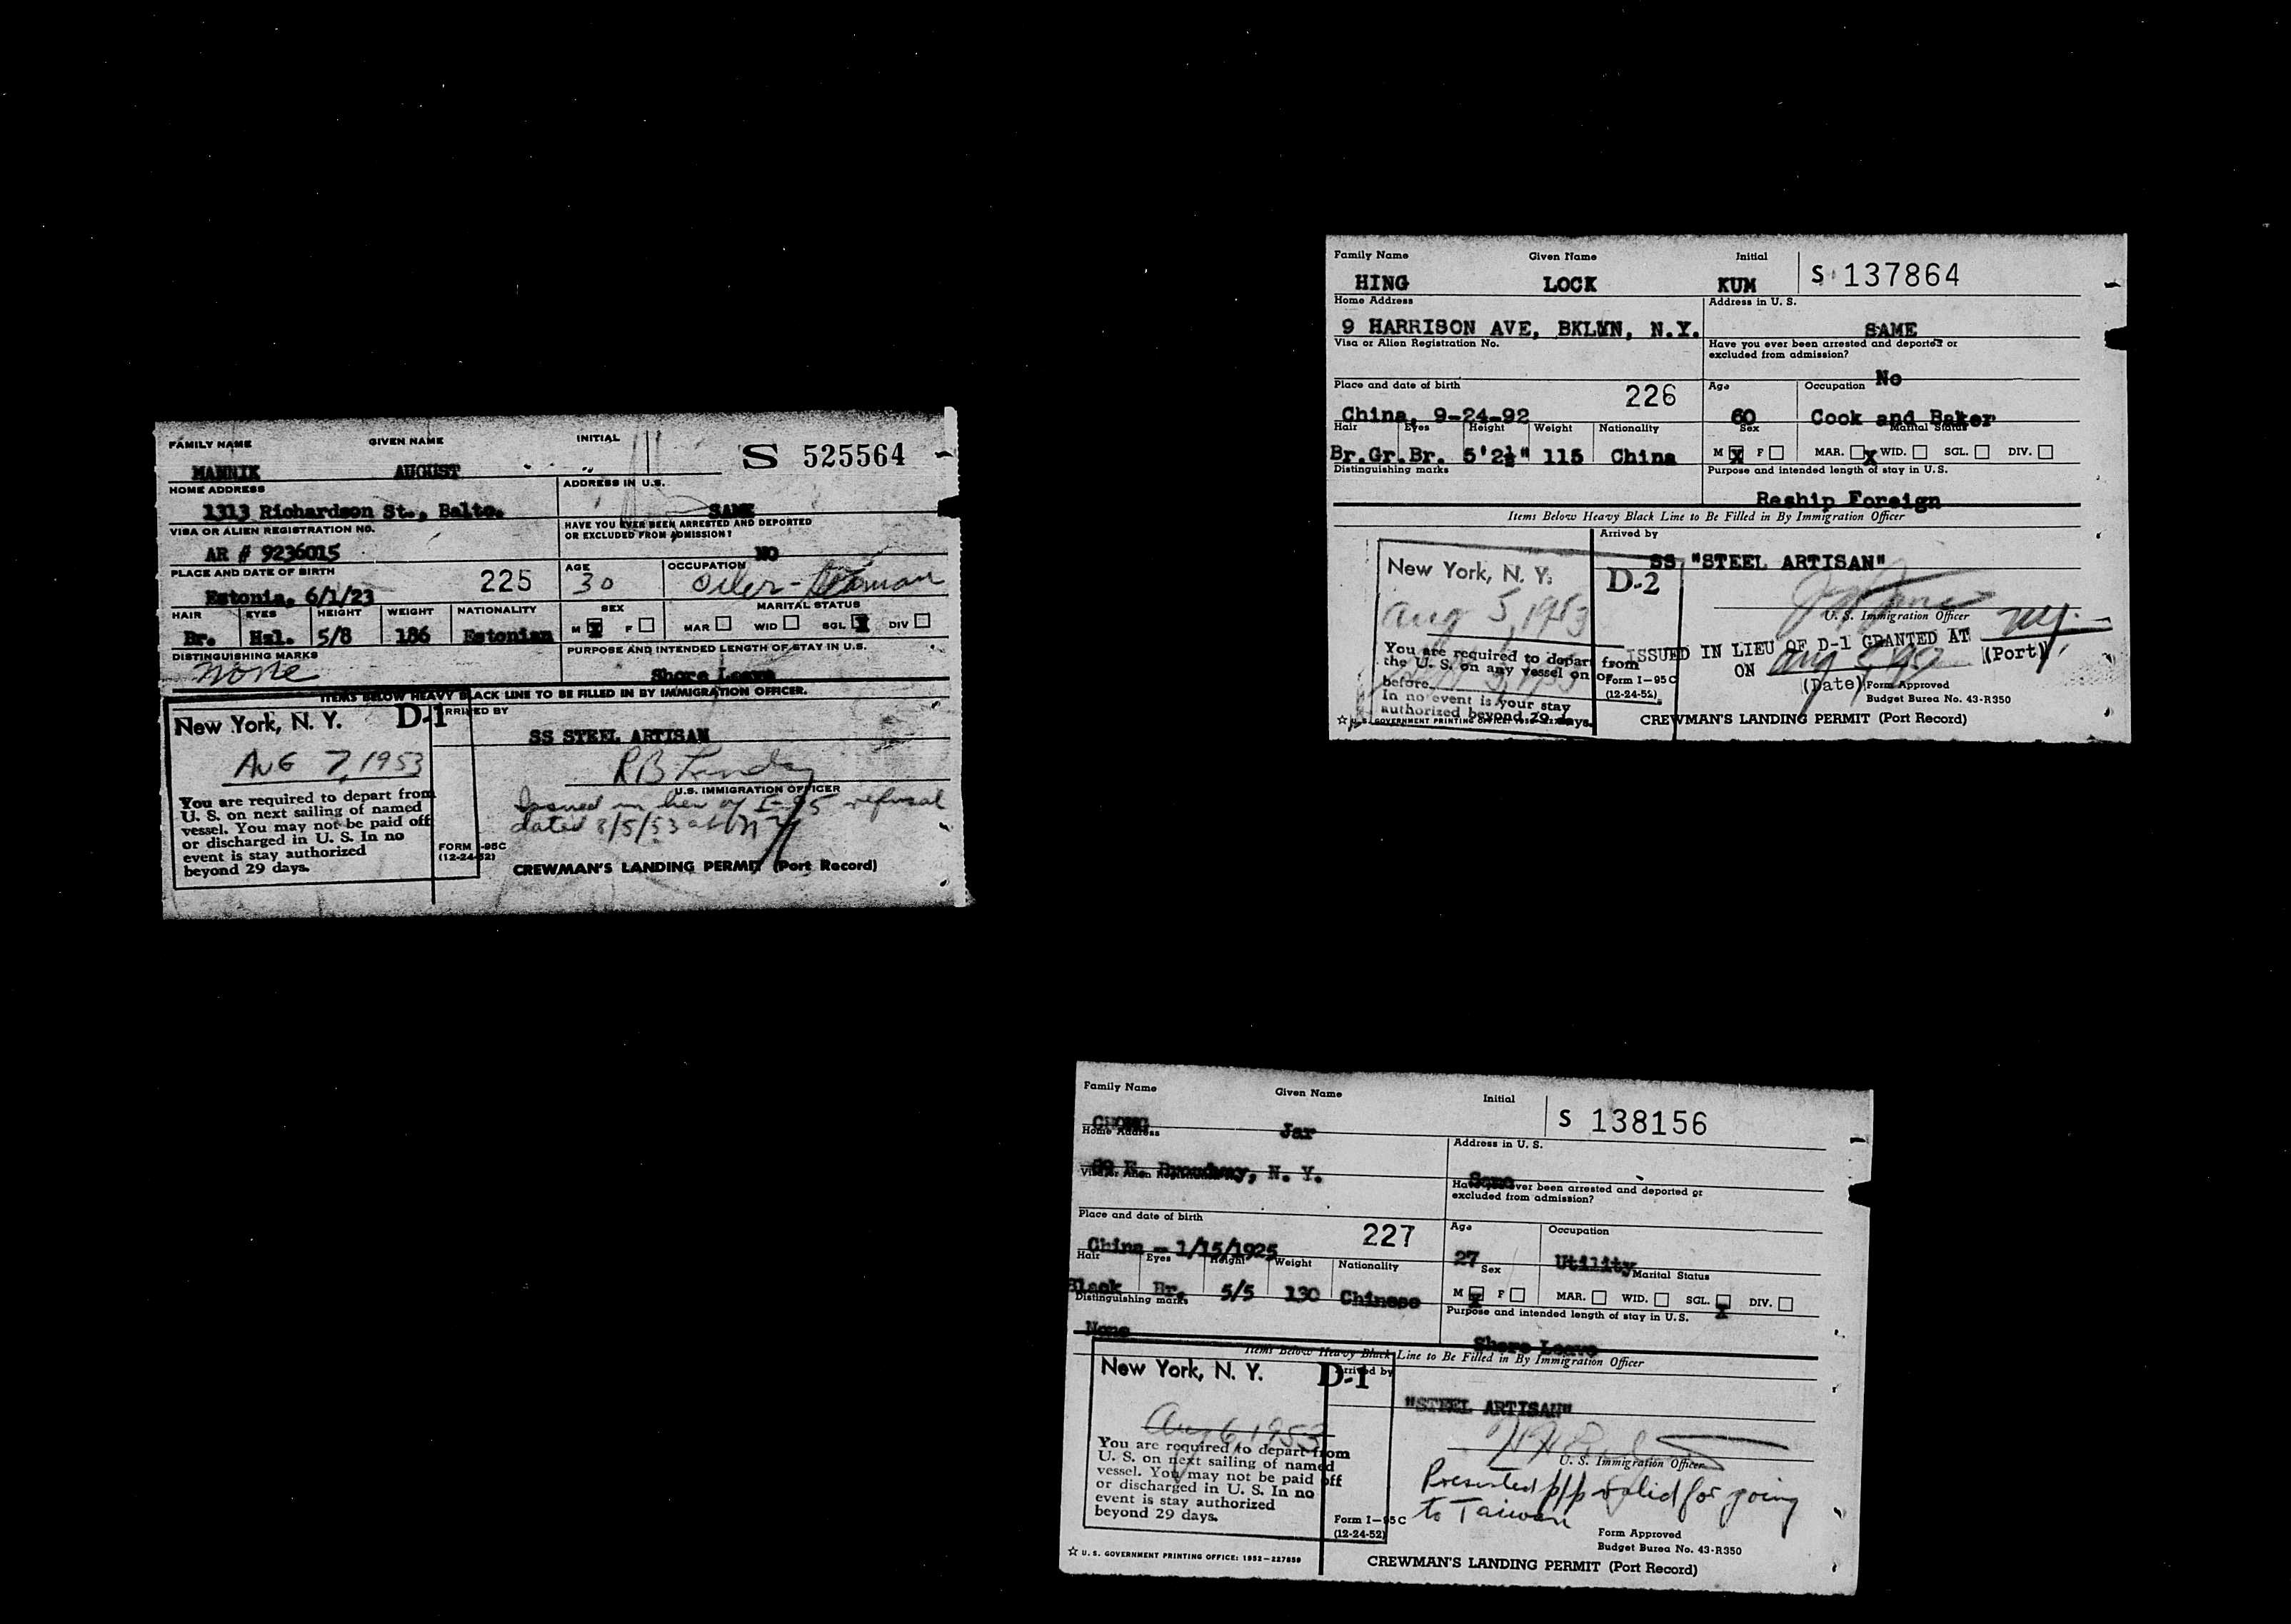 FAMILY NAME GIVEN NAME INITIAL
S 525564
MANNIK AUGUST
HOME ADDRESS ADDRESS IN U.S.
1313 Richardson St., Balto. SAME
VISA OR ALIEN REGISTRATION NO. HAVE YOU EVER BEEN ARRESTED AND DEPORTED
OR EXCLUDED FROM ADMISSION?
AR # 9236015 NO
PLACE AND DATE OF BIRTH 225 AGE OCCUPATION
Estonia, 6/1/23 30 Oiler-
HAIR EYES HEIGHT WEIGHT NATIONALITY SEX MARITAL STATUS
Br. Hzl. 5/8 186 Estonian M X F MAR WID SGL X DIV
DISTINGUISHING MARKS PURPOSE AND INTENDED LENGTH OF STAY IN U.S.
None Shore Leave
ITEMS BELOW HEAVY BLACK LINE TO BE FILLED IN BY IMMIGRATION OFFICER.
New York, N. Y. D-1 ARRIVED BY
SS STEEL ARTISAN
AUG 7, 1953
U.S. IMMIGRATION OFFICER
You are required to depart from
U. S. on next sailing of named
vessel. You may not be paid off
or discharged in U. S. In no
event is stay authorized
beyond 29 days.
Issued in lieu of I-95 refusal
dated 8/5/53 at NY
FORM I-95C
(12-24-52)
CREWMAN'S LANDING PERMIT (Port Record)
Family Name Given Name Initial
HING LOCK KUM S 137864
Home Address Address in U. S.
9 HARRISON AVE, BKLYN, N.Y. SAME
Visa or Alien Registration No. Have you ever been arrested and deported or
excluded from admission?
No
Place and date of birth 226 Age Occupation
China, 9-24-92 60 Cook and Baker
Hair Eyes Height Weight Nationality Sex Marital Status
Br.Gr. Br. 5'2½" 115 China M X F MAR. X WID. SGL. DIV.
Distinguishing marks Purpose and intended length of stay in U.S.
Reship Foreign
Items Below Heavy Black Line to Be Filled in By Immigration Officer
Arrived by
SS "STEEL ARTISAN"
New York, N. Y. D-2
Aug 5, 1953
U. S. Immigration Officer
You are required to depart from
the U. S. on any vessel on or
before
In no event is your stay
authorized beyond 29 days.
ISSUED IN LIEU OF D-1 GRANTED AT NY. (Port)
ON (Date)
Form I-95C
(12-24-52)
Form Approved
Budget Burea No. 43-R350
CREWMAN'S LANDING PERMIT (Port Record)
Family Name Given Name Initial
CHONG Jar S 138156
Home Address Address in U. S.
69 E. Broadway, N. Y. Same
Visa or Alien Registration No. Have you ever been arrested and deported or
excluded from admission?
Place and date of birth 227 Age Occupation
China - 1/15/1925 27 Utility
Hair Eyes Height Weight Nationality Sex Marital Status
Black Br. 5/5 130 Chinese M X F MAR. WID. SGL. X DIV.
Distinguishing marks Purpose and intended length of stay in U.S.
None Shore Leave
Items Below Heavy Black Line to Be Filled in By Immigration Officer
New York, N. Y. D-1 Arrived by
"STEEL ARTISAN"
Aug 6, 1953
U. S. Immigration Officer
You are required to depart from
U. S. on next sailing of named
vessel. You may not be paid off
or discharged in U. S. In no
event is stay authorized
beyond 29 days.
Presented p/p valid for going
to Taiwan
Form I-95C
(12-24-52)
Form Approved
Budget Burea No. 43-R350
☆ U. S. GOVERNMENT PRINTING OFFICE: 1952-227859
CREWMAN'S LANDING PERMIT (Port Record)